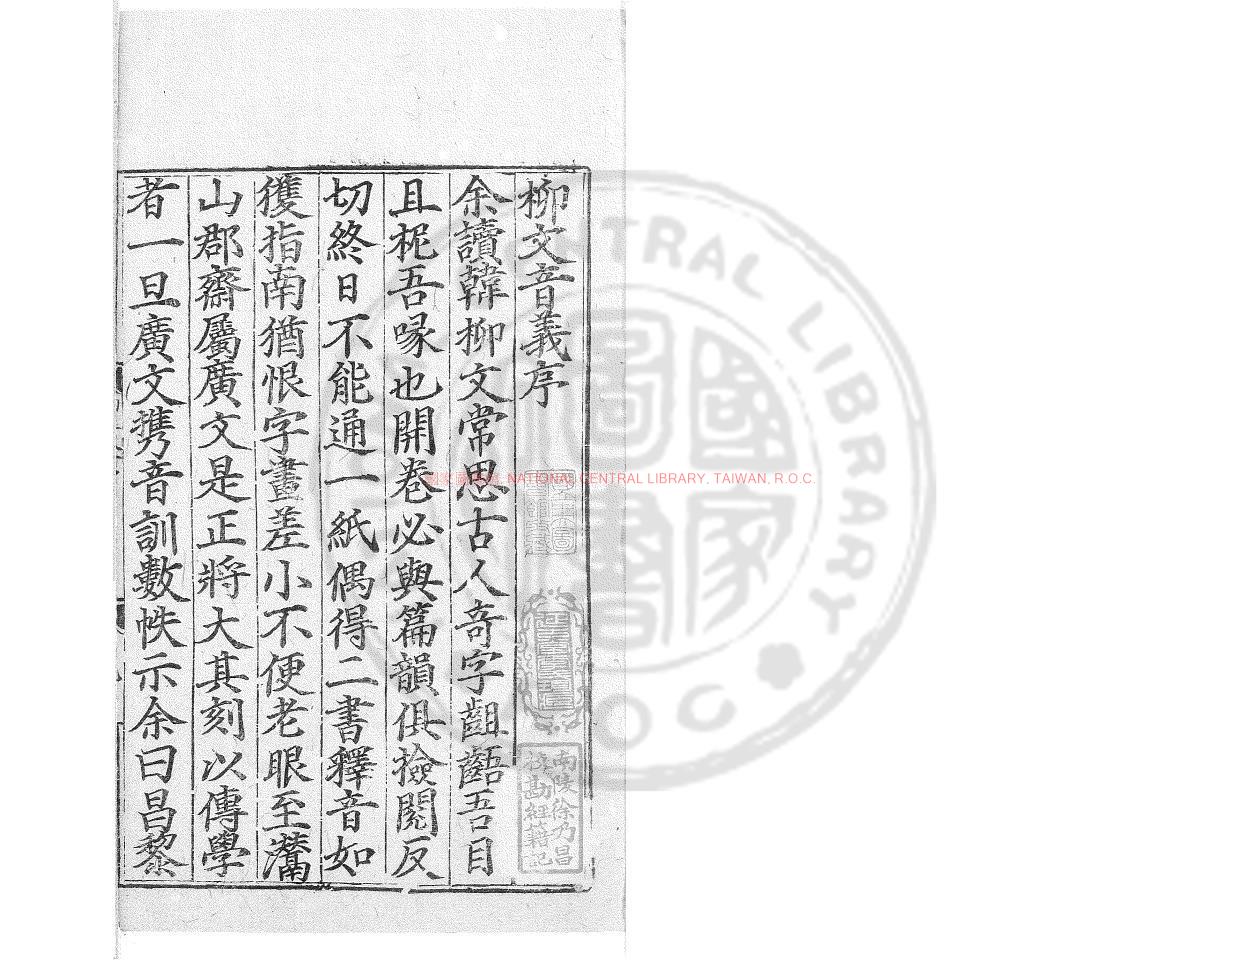 柳文音義序
余讀韓柳文常思古人竒字齟齬吾目
且柅吾喙也開卷必與篇韻俱撿閱反
切終日不能通一紙偶得二書釋音如
獲指南猶恨字畫差小不便老眼至灊
山郡齋屬廣文是正將大其刻以傳學
者一旦廣文携音訓數帙示余曰昌黎
南陵徐乃昌
校勘經籍記
國家圖書館, NATIONAL CENTRAL LIBRARY, TAIWAN, R.O.C.
CENTRAL LIBRARY
R.O.C